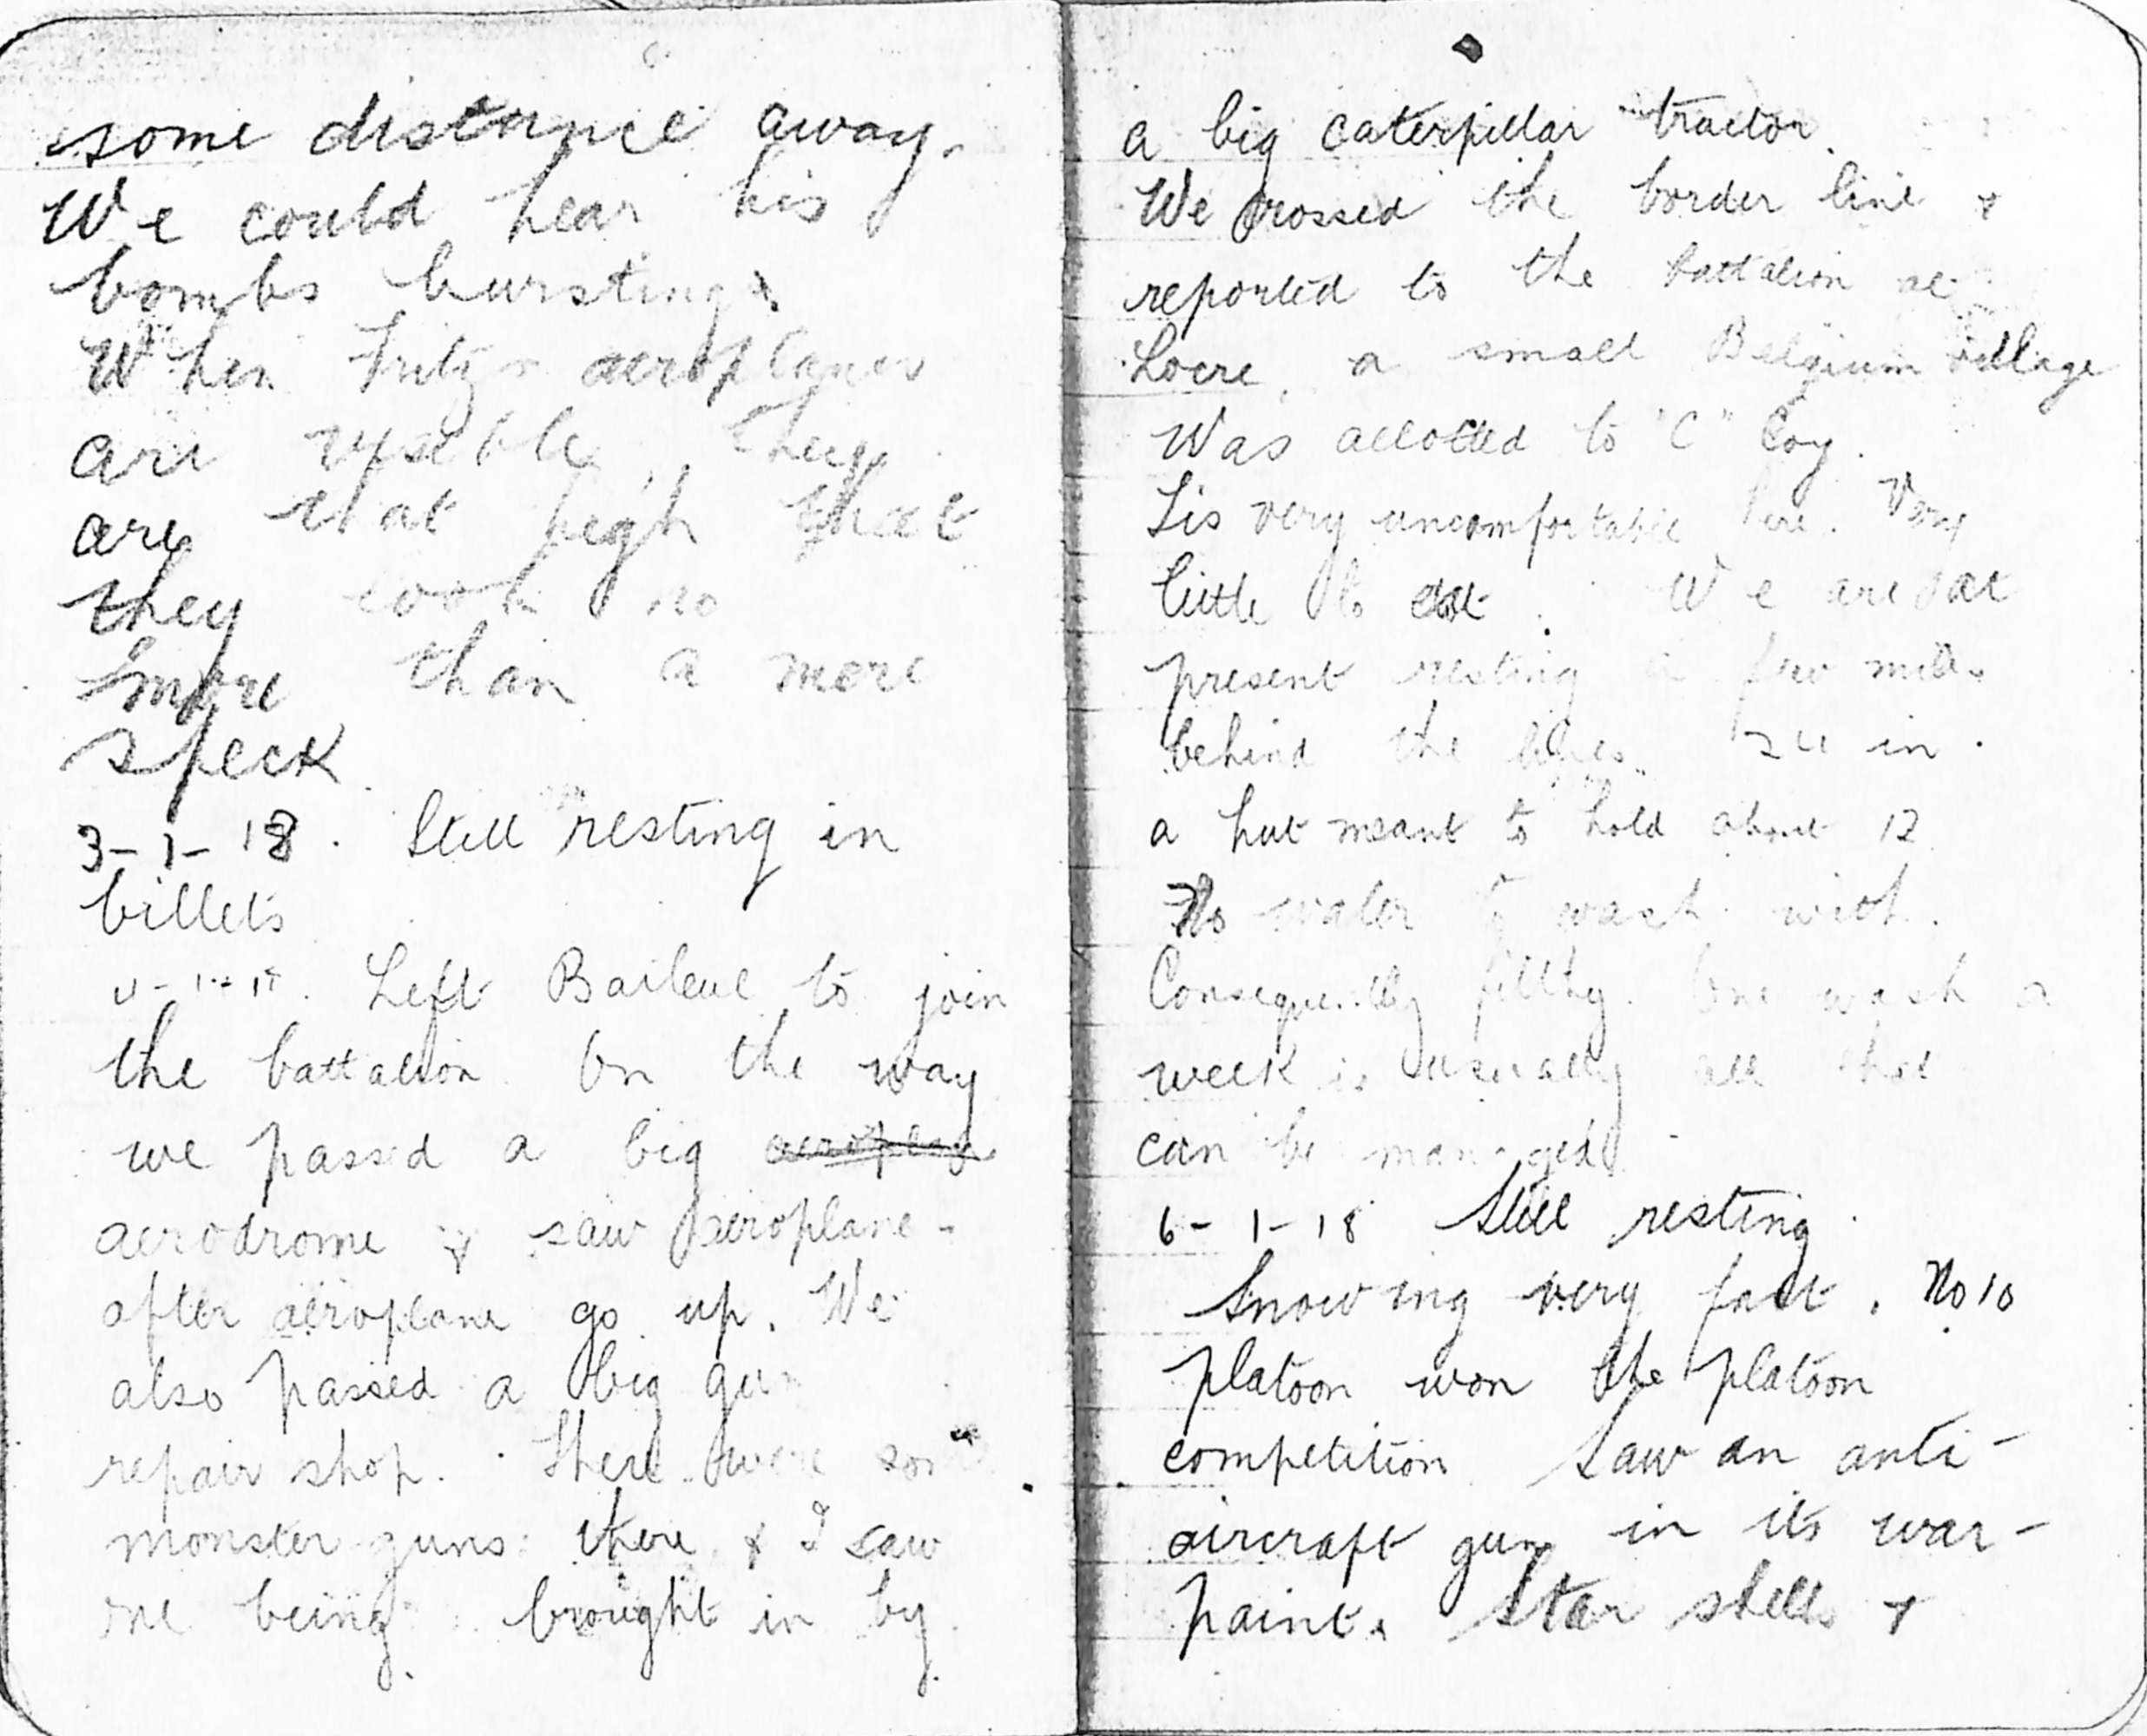 some distance away.
We could hear his
bombs bursting.
When Fritz's aeroplanes
are visible, they
are that high that
they look no
more than a mere
speck
3-1-18. Still resting in
billets
4-1-18. Left Bailleul to join
the battalion On the way
we passed a big
aerodrome & saw aeroplane -
after aeroplane go up. We
also passed a big gun
repair shop. There were some
monster guns there & I saw
one being brought in by
a big caterpillar tractor.
We crossed the border line &
reported to the battalion at
Locre, a small Belgium village
Was allotted to "C" Coy.
Tis very uncomfortable here. Very
little to eat. We are at
present resting a few miles
behind the lines. in
a hut meant to hold about 12
No water to wash with.
Consequently filthy. One wash a
week is usually all that
can be managed
6-1-18 Still resting.
Snowing very fast. No 10
platoon won the platoon
competition Saw an anti-
aircraft gun in its war-
paint. Star shells &